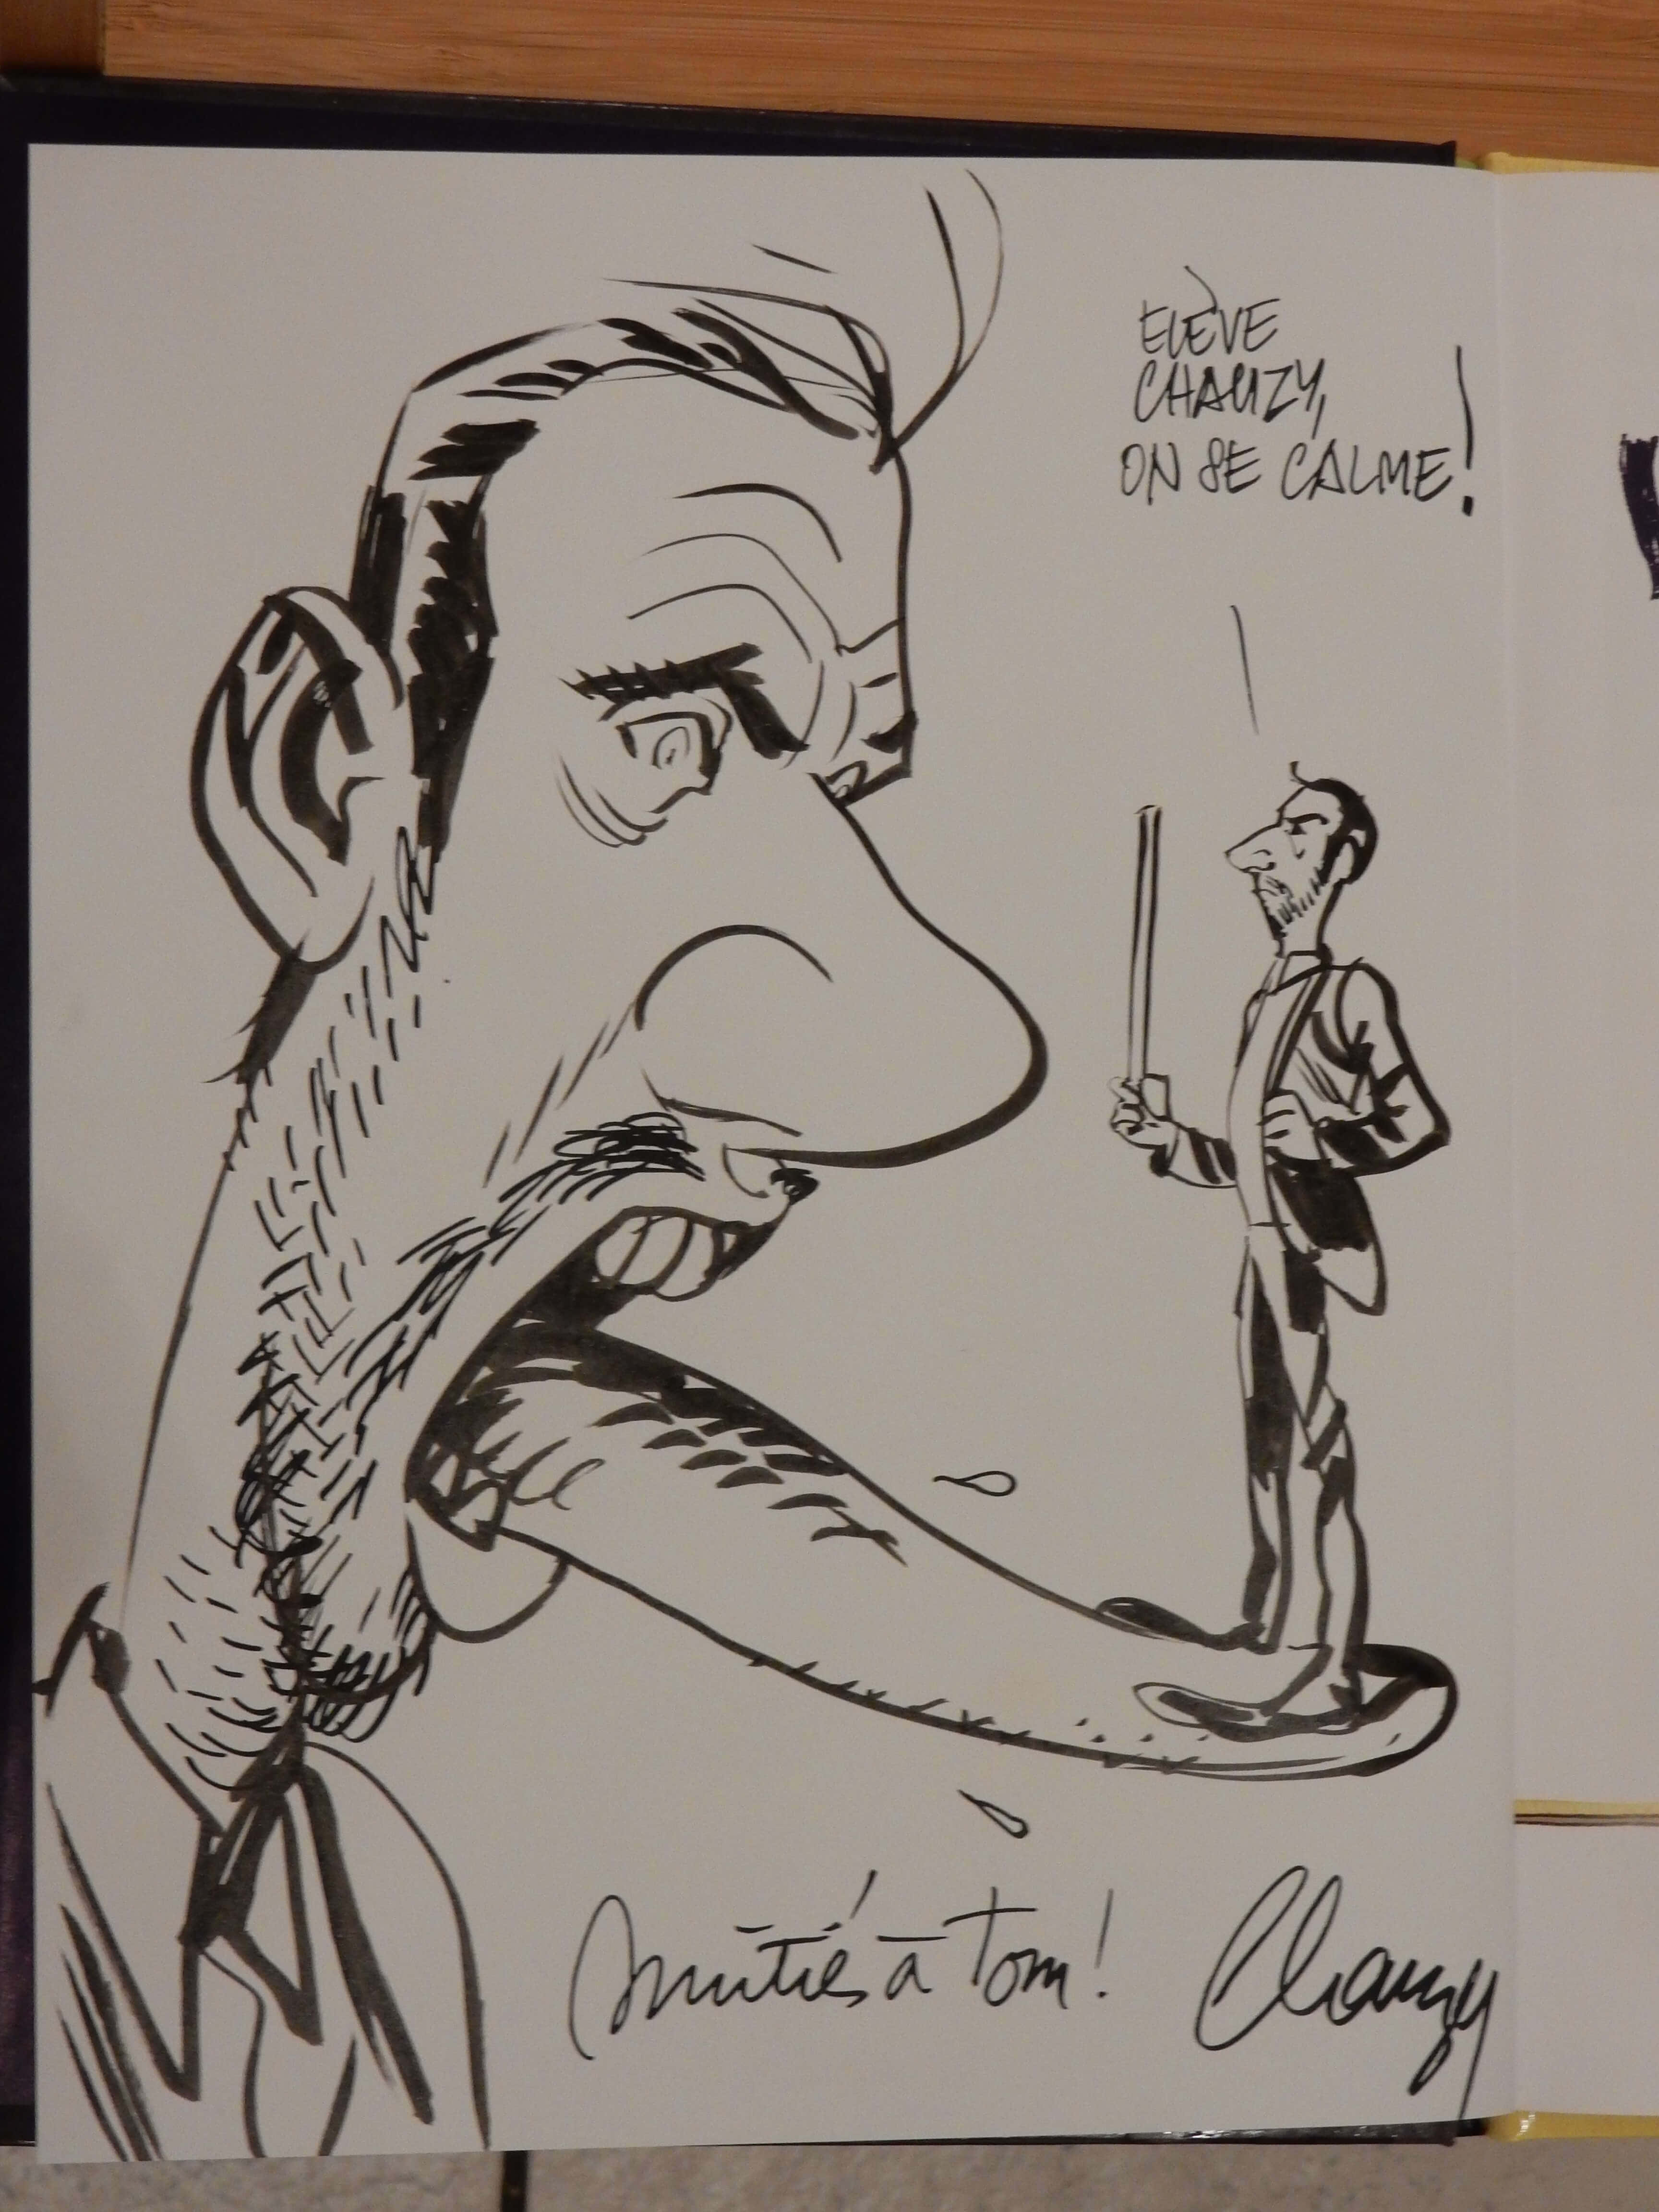 ELÈVE
CHAUZY,
ON SE CALME !
Amitiés à Tom !
Chauzy